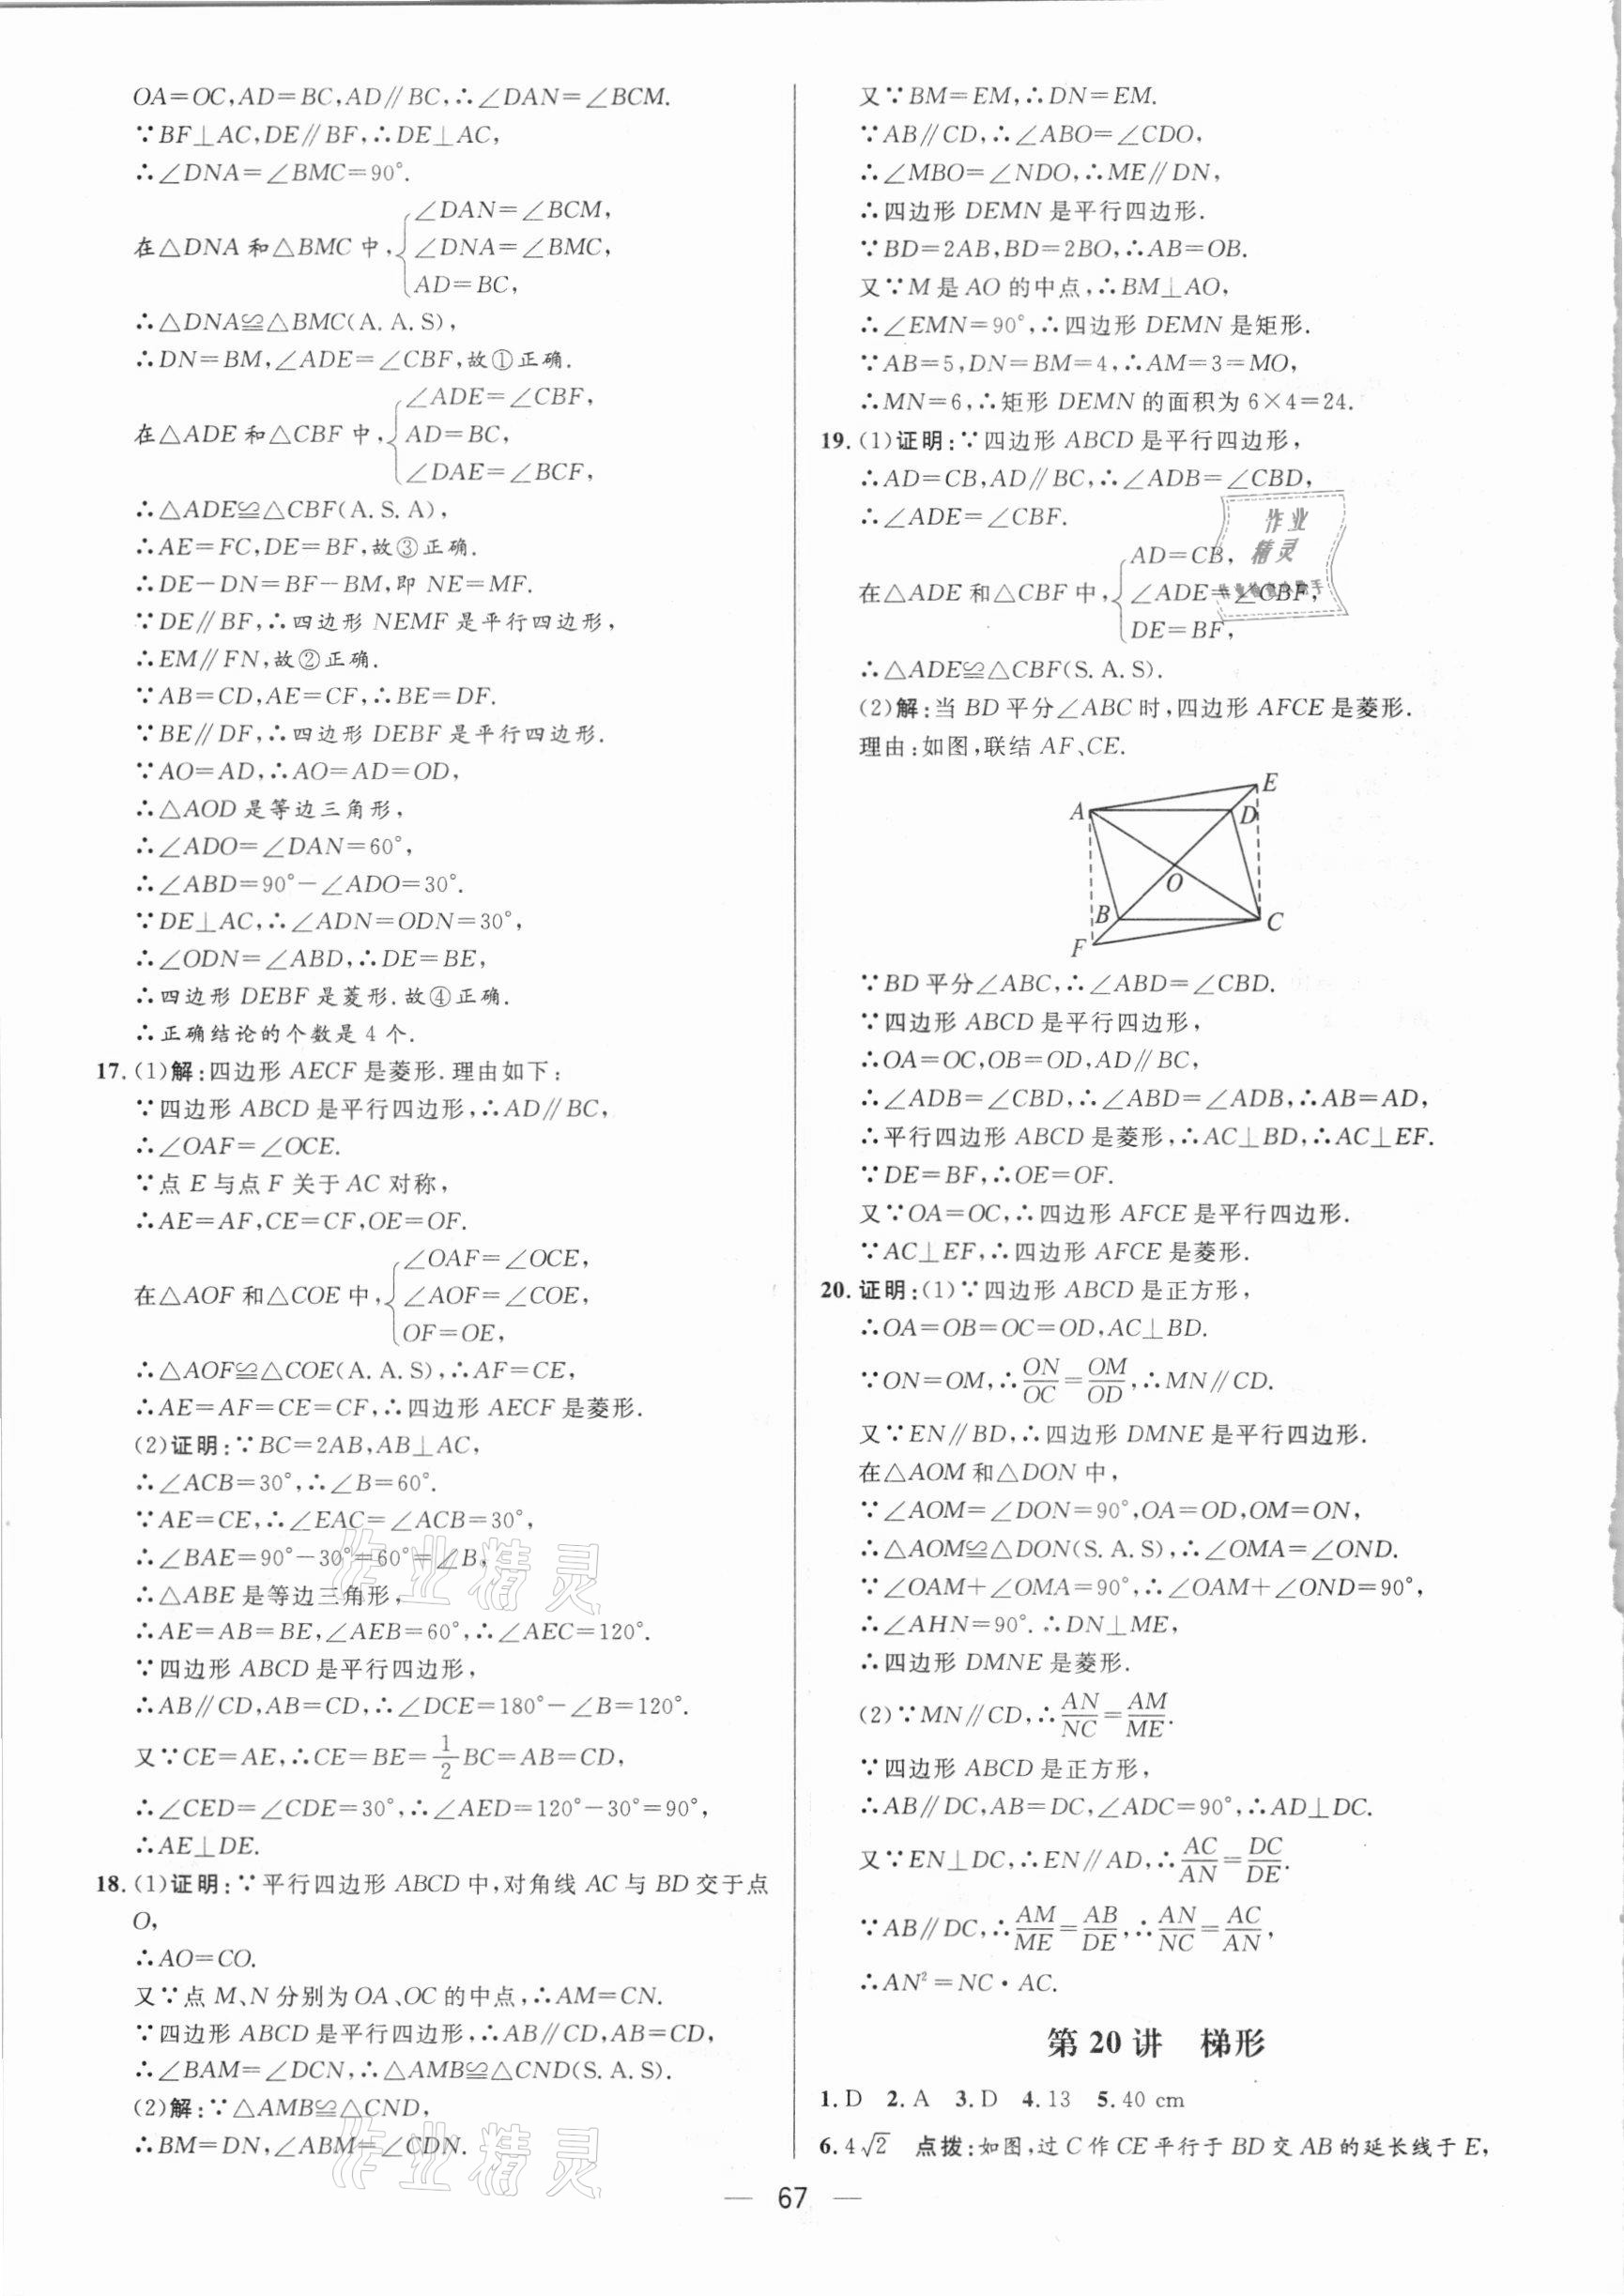 OA=OC,AD=BC,AD∥BC,∴∠DAN=∠BCM.
∵BF⊥AC,DE∥BF,∴DE⊥AC,
∴∠DNA=∠BMC=90°.
∠DAN=∠BCM,
在△DNA 和△BMC 中,{∠DNA=∠BMC,
AD=BC,
∴△DNA≌△BMC(A.A.S),
∴DN=BM,∠ADE=∠CBF,故①正确.
∠ADE=∠CBF,
在△ADE 和△CBF 中,{AD=BC,
∠DAE=∠BCF,
∴△ADE≌△CBF(A.S.A),
∴AE=FC,DE=BF,故③正确.
∴DE−DN=BF−BM,即 NE=MF.
∵DE∥BF,∴四边形 NEMF 是平行四边形,
∴EM∥FN,故②正确.
∵AB=CD,AE=CF,∴BE=DF.
∵BE∥DF,∴四边形 DEBF 是平行四边形.
∵AO=AD,∴AO=AD=OD,
∴△AOD 是等边三角形,
∴∠ADO=∠DAN=60°,
∴∠ABD=90°−∠ADO=30°.
∵DE⊥AC,∴∠ADN=ODN=30°,
∴∠ODN=∠ABD,∴DE=BE,
∴四边形 DEBF 是菱形.故④正确.
∴正确结论的个数是 4 个.
17.(1)解:四边形 AECF 是菱形.理由如下:
∵四边形 ABCD 是平行四边形,∴AD∥BC,
∴∠OAF=∠OCE.
∵点 E 与点 F 关于 AC 对称,
∴AE=AF,CE=CF,OE=OF.
∠OAF=∠OCE,
在△AOF 和△COE 中,{∠AOF=∠COE,
OF=OE,
∴△AOF≌△COE(A.A.S),∴AF=CE,
∴AE=AF=CE=CF,∴四边形 AECF 是菱形.
(2)证明:∵BC=2AB,AB⊥AC,
∴∠ACB=30°,∴∠B=60°.
∵AE=CE,∴∠EAC=∠ACB=30°,
∴∠BAE=90°−30°=60°=∠B,
∴△ABE 是等边三角形,
∴AE=AB=BE,∠AEB=60°,∴∠AEC=120°.
∵四边形 ABCD 是平行四边形,
∴AB∥CD,AB=CD,∴∠DCE=180°−∠B=120°.
又∵CE=AE,∴CE=BE=1/2BC=AB=CD,
∴∠CED=∠CDE=30°,∴∠AED=120°−30°=90°,
∴AE⊥DE.
18.(1)证明:∵平行四边形 ABCD 中,对角线 AC 与 BD 交于点
O,
∴AO=CO.
又∵点 M、N 分别为 OA、OC 的中点,∴AM=CN.
∵四边形 ABCD 是平行四边形,∴AB∥CD,AB=CD,
∴∠BAM=∠DCN,∴△AMB≌△CND(S.A.S).
(2)解:∵△AMB≌△CND,
∴BM=DN,∠ABM=∠CDN.
又∵BM=EM,∴DN=EM.
∵AB∥CD,∴∠ABO=∠CDO,
∴∠MBO=∠NDO,∴ME∥DN,
∴四边形 DEMN 是平行四边形.
∵BD=2AB,BD=2BO,∴AB=OB.
又∵M 是 AO 的中点,∴BM⊥AO,
∴∠EMN=90°,∴四边形 DEMN 是矩形.
∵AB=5,DN=BM=4,∴AM=3=MO,
∴MN=6,∴矩形 DEMN 的面积为 6×4=24.
19.(1)证明:∵四边形 ABCD 是平行四边形,
∴AD=CB,AD∥BC,∴∠ADB=∠CBD,
∴∠ADE=∠CBF.
AD=CB,
在△ADE 和△CBF 中,{∠ADE=∠CBF,
DE=BF,
∴△ADE≌△CBF(S.A.S).
(2)解:当 BD 平分∠ABC 时,四边形 AFCE 是菱形.
理由:如图,联结 AF、CE.
E
A
D
O
B
C
F
∵BD 平分∠ABC,∴∠ABD=∠CBD.
∵四边形 ABCD 是平行四边形,
∴OA=OC,OB=OD,AD∥BC,
∴∠ADB=∠CBD,∴∠ABD=∠ADB,∴AB=AD,
∴平行四边形 ABCD 是菱形,∴AC⊥BD,∴AC⊥EF.
∵DE=BF,∴OE=OF.
又∵OA=OC,∴四边形 AFCE 是平行四边形.
∵AC⊥EF,∴四边形 AFCE 是菱形.
20.证明:(1)∵四边形 ABCD 是正方形,
∴OA=OB=OC=OD,AC⊥BD.
∵ON=OM,∴ON/OC=OM/OD,∴MN∥CD.
又∵EN∥BD,∴四边形 DMNE 是平行四边形.
在△AOM 和△DON 中,
∵∠AOM=∠DON=90°,OA=OD,OM=ON,
∴△AOM≌△DON(S.A.S),∴∠OMA=∠OND.
∵∠OAM+∠OMA=90°,∴∠OAM+∠OND=90°,
∴∠AHN=90°.∴DN⊥ME,
∴四边形 DMNE 是菱形.
(2)∵MN∥CD,∴AN/NC=AM/ME.
∵四边形 ABCD 是正方形,
∴AB∥DC,AB=DC,∠ADC=90°,∴AD⊥DC.
又∵EN⊥DC,∴EN∥AD,∴AC/AN=DC/DE.
∵AB∥DC,∴AM/ME=AB/DE,∴AN/NC=AC/AN,
∴AN²=NC·AC.
第 20 讲 梯形
1.D 2.A 3.D 4.13 5.40 cm
6.4√2 点拨:如图,过 C 作 CE 平行于 BD 交 AB 的延长线于 E,
— 67 —
作业
精灵
作业精灵
作业精灵